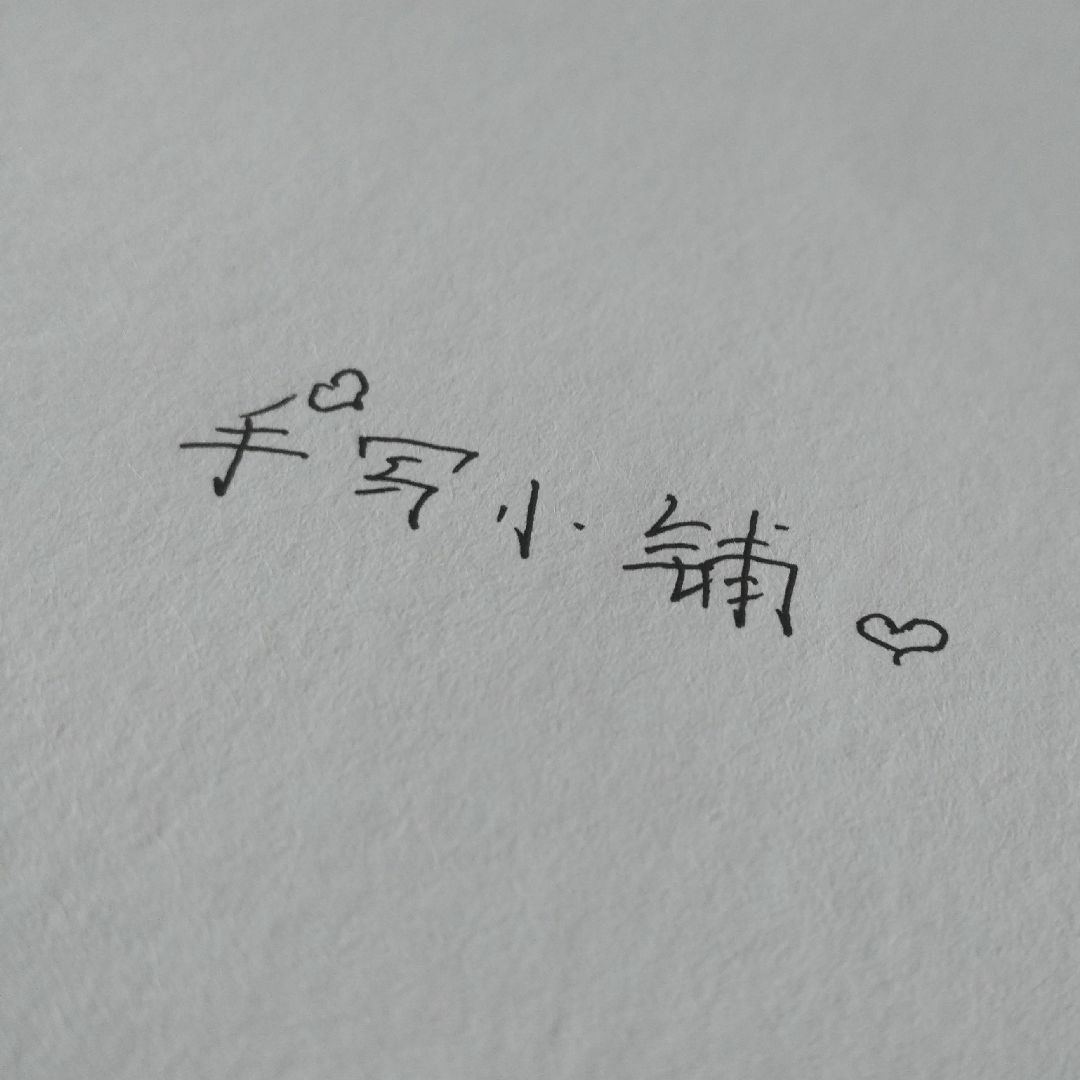 手写小铺